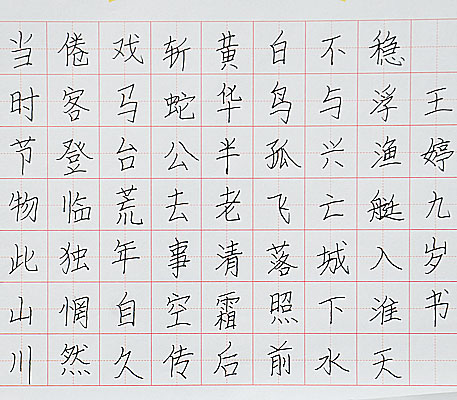 当时节物此山川
倦客登临独惘然
戏马台荒年自久
斩蛇公去事空传
黄华半老清霜后
白鸟孤飞落照前
不与兴亡城下水
稳浮渔艇入淮天
王婷九岁书